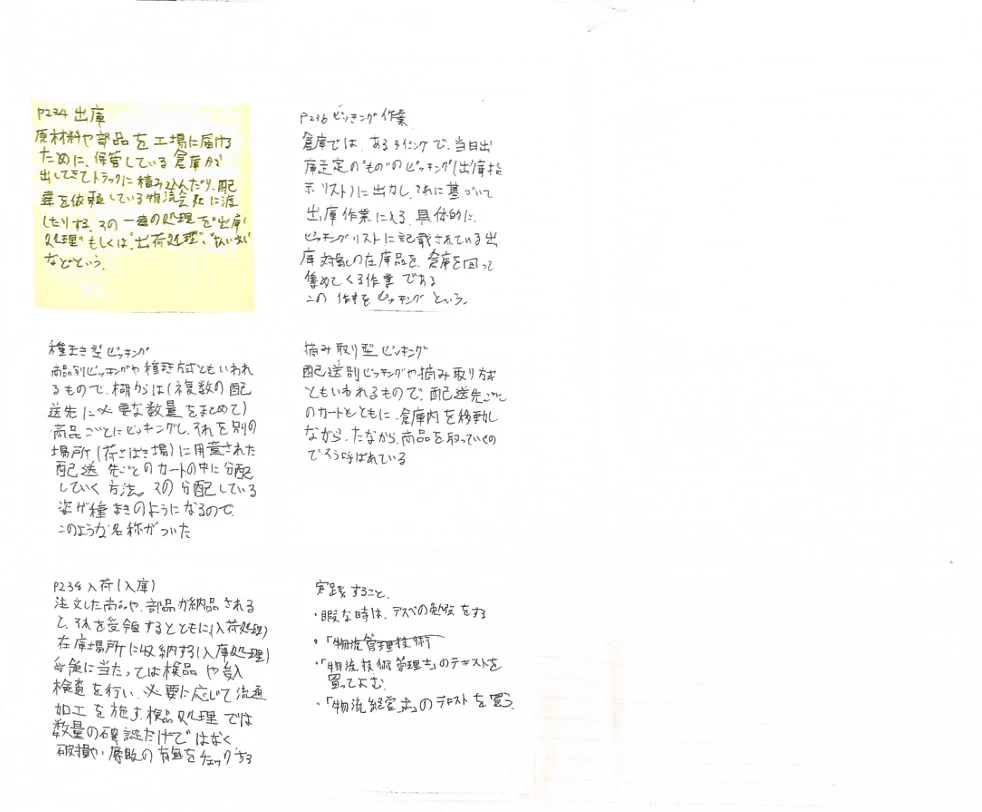 P234 出庫
原材料や部品を工場に届ける
ために、保管している倉庫から
出してきてトラックに積み込んだり、配
車を依頼している物流会社に渡
したりする。その一連の処理を"出庫
処理"もしくは"出荷処理"、"払い出し"
などという。
P216 ピッキング作業
倉庫では、あるタイミングで、当日出
庫予定の"もの"のピッキング(出庫指
示リスト)に出力し、それに基づいて
出庫作業に入る。具体的に、
ピッキングリストに記載されている出
庫対象の在庫品を、倉庫を回って
集めてくる作業である
この作業をピッキングという。
種まき型ピッキング
商品別ピッキングや種まき方式ともいわれ
るもので、棚からは(複数の配
送先に必要な数量をまとめて)
商品ごとにピッキングし、それを別の
場所(荷さばき場)に用意された
配送先ごとのカートの中に分配
していく方法。その分配している
姿が種まきのようになるので、
このような名称がついた
摘み取り型ピッキング
配送別ピッキングや摘み取り方式
ともいわれるもので、配送先ごと
のカートとともに、倉庫内を移動し
ながら、たなから、商品を取っていくの
でそう呼ばれている
P234 入荷(入庫)
注文した商品や、部品が納品される
と、それを受領するとともに(入荷処理)
在庫場所に収納する(入庫処理)
受領に当たっては検品や受入
検査を行い、必要に応じて流通
加工を施す。検品処理では
数量の確認だけではなく
破損や、腐敗の有無をチェックする
実践すること。
・暇な時は、デスペの勉強をする
・「物流管理技術
・「物流技術管理士」のテキストを
買ってよむ。
・「物流経営士」のテキストを買う。